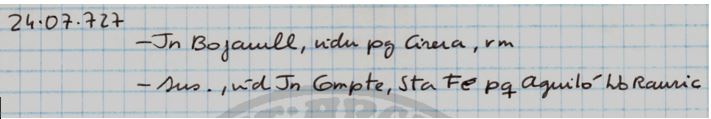 24.07.727
-Jn Bojaull, vidu pg Cirera, rm
-sus., vid Jn Compte, Sta Fe pq Aguiló hb Rauric